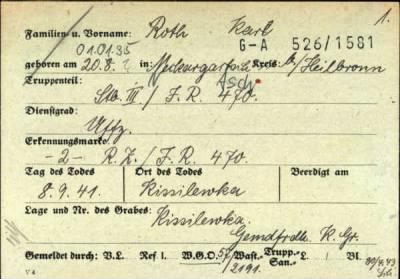 1.
Familien u. Vorname: Roth Karl
G-A 526/1581
01.01.35
geboren am 20.8. in: Neckargartach Kreis: b/Heilbronn
Truppenteil: Stb. III / J.R. 470.
Dienstgrad: Uffz.
Erkennungsmarke: -2- R.Z./ J.R. 470.
Tag des Todes Ort des Todes Beerdigt am
8.9.41 Kissilewka
Lage und Nr. des Grabes: Kissilewka.
Gemdfrdh. K. Gr.
Gemeldet durch: V.L. Ref I. W.G.O. 57/2191. Wast.- Trupp.- San.- L./ Bl.
V 4